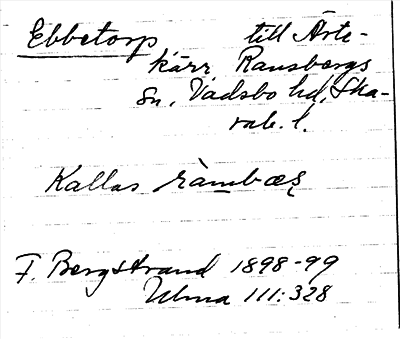 Ebbetorp till Ärte-
kärr Ransbergs
sn, Vadsbo hd, Ska-
rab. l.
Kallas
F. Bergstrand 1898-99
Ulma 111:328